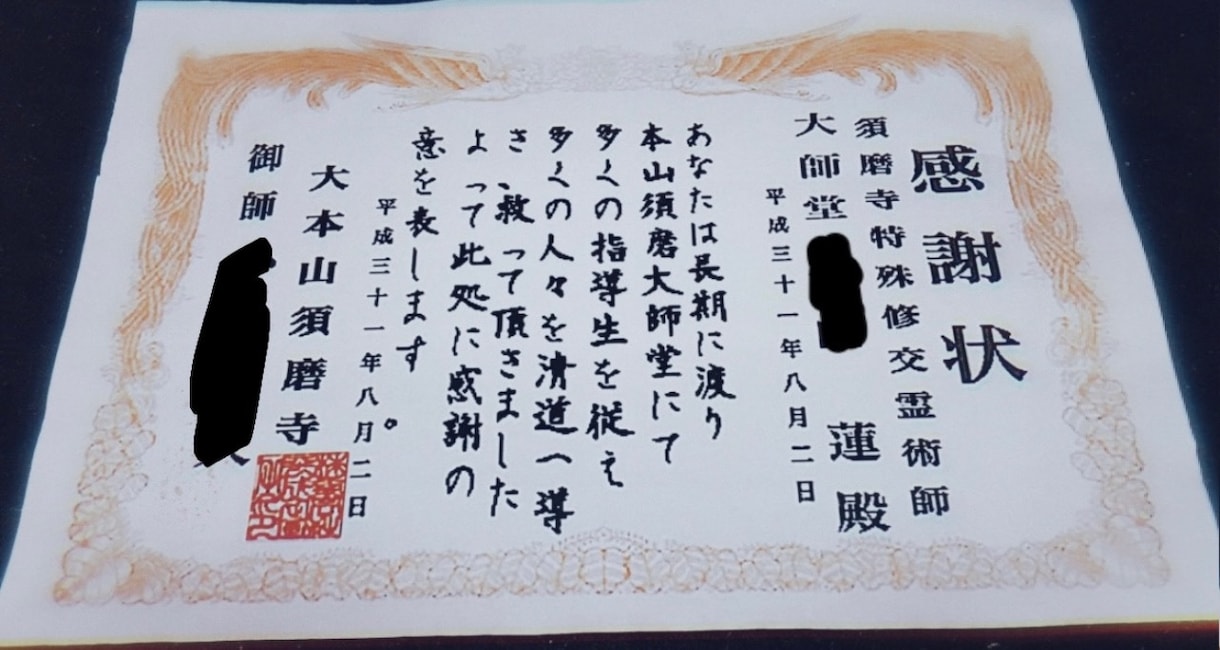 感謝状
須磨寺特殊修交霊術師
大師堂 蓮殿
平成三十一年八月二日
あなたは長期に渡り
本山須磨大師堂にて
多くの指導生を従え
多くの人々を清道へ導
き、救って頂きました
よって此処に感謝の
意を表します。
平成三十一年八月二日
大本山須磨寺
御師